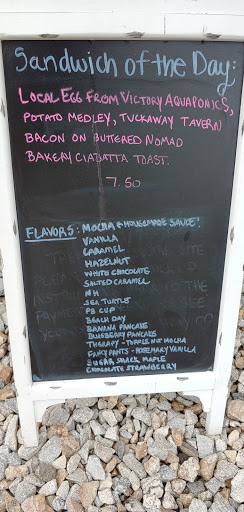 Sandwich of the Day:
Local Egg From Victory Aquaponics,
Potato Medley, Tuckaway Tavern
Bacon on Buttered Nomad
Bakery Ciabatta Toast.
7.50
Flavors: Mocha & Homemade Sauce!
Vanilla
Caramel
Hazelnut
White Chocolate
Salted Caramel
NH
Sea Turtle
PB Cup
Beach Day
Banana Pancake
Blueberry Pancake
Therapy - Toffee Nut Mocha
Fancy Pants - Rosemary Vanilla
Sugar Shack Maple
Chocolate Strawberry